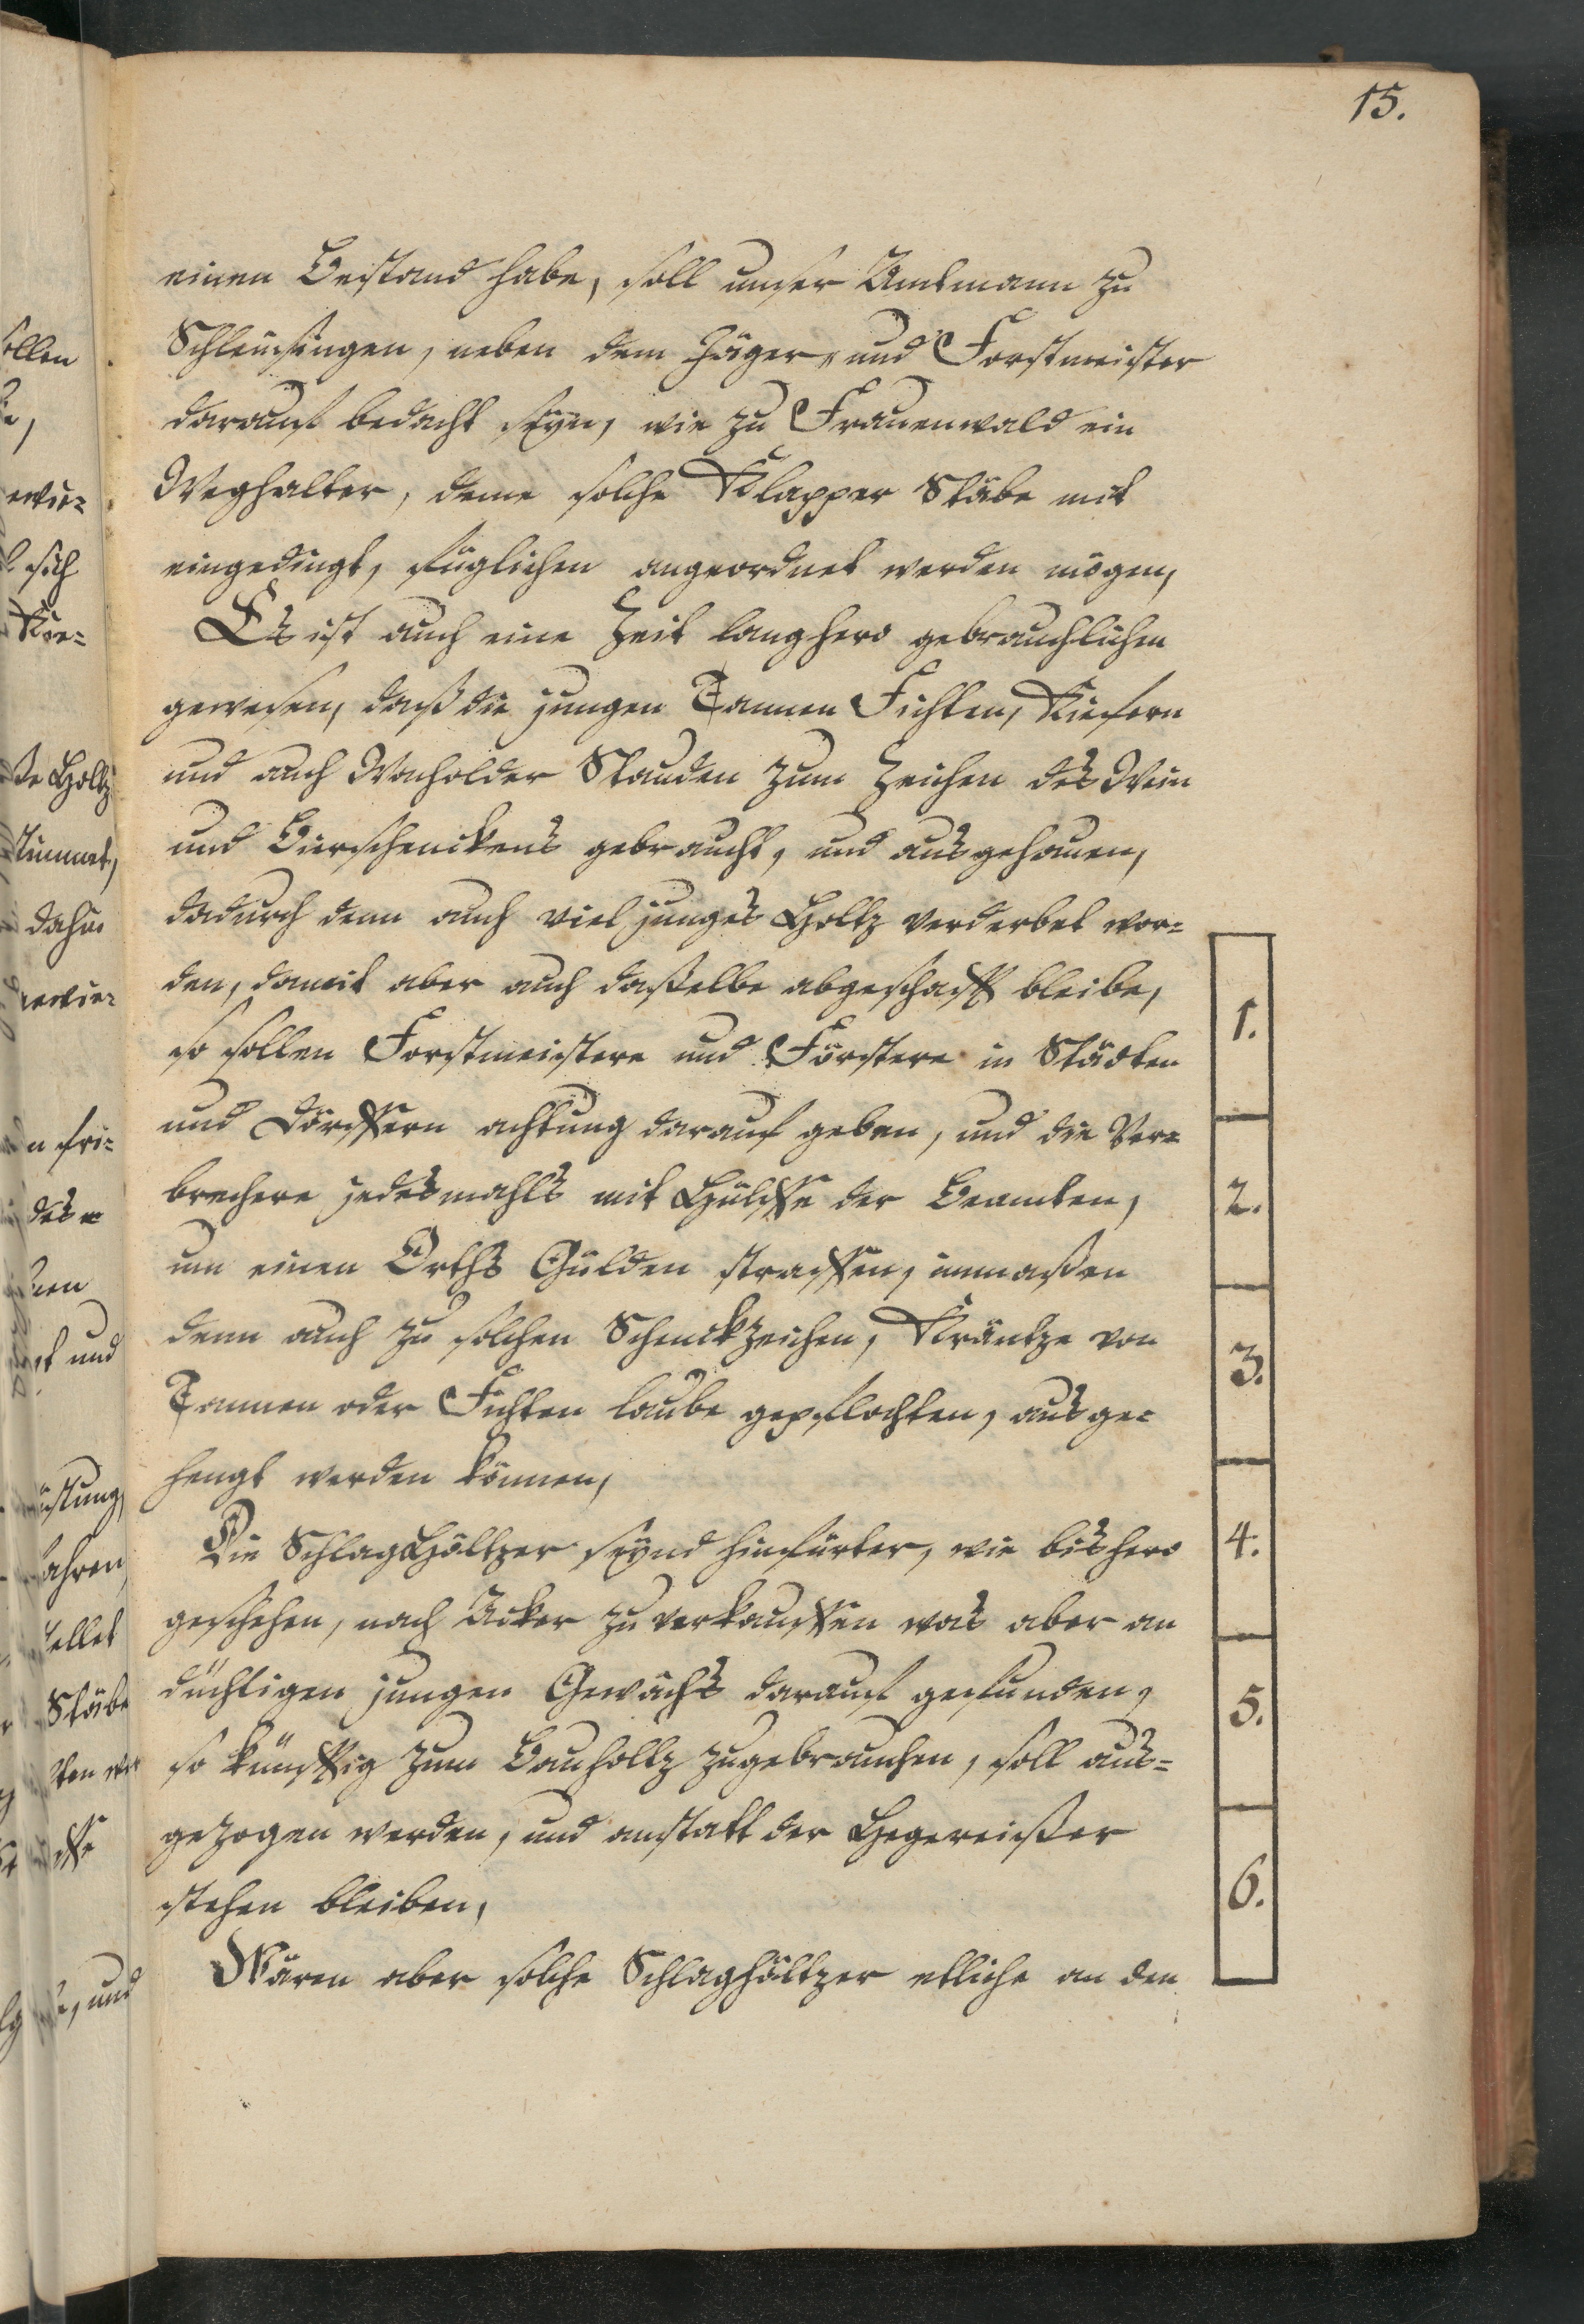 15.
einen Bestand habe, soll unser Amtmann zu
Schleusingen, neben dem Jäger, und Forstmeister
darauf bedacht seyn, wie zu Frauenwald ein
Weghalter, deme solche Klapper Stäbe mit
eingedingt, füglichen angeordnet werden mögen,
Es ist auch eine Zeit langhero gebrauchlichen
gewesen, daß die jungen Tannen Fichten, Kiefern
und auch Wacholder Stauden zum Zeichen des Wein
und Bierschenckens gebraucht, und ausgehauen,
dadurch denn auch viel junges Holtz verderbet wor-
den, damit aber auch daßelbe abgeschafft bleibe,
so sollen Forstmeistere und Förstere in Städten
und Dörffern achtung darauf geben, und die Ver-
brechere jedesmahls mit Hülffe der Beamten,
um einen Orths Gülden straffen, inmaßen
denn auch zu solchen Schenckzeichen, Kräntze von
Tannen oder Fichten laube gepflochten, ausge-
hengt werden können,
Die SchlagHöltzer seynd hinfürter, wie bishero
geschehen, nach Acker zu verkauffen was aber an
düchtigen jungen Gewächs darauf gefunden,
so künfftig zum Bauholtz zugebrauchen, soll aus-
gezogen werden, und anstatt der Hegereißer
stehen bleiben,
Wären aber solche Schlaghöltzer etliche an den
1.
2.
3.
4.
5.
6.